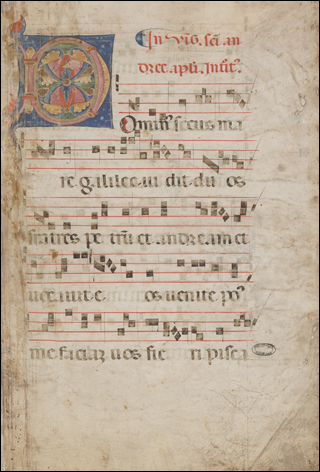 In vig̃. sc̃i an
dree apl̃i. Introit̃.
Dominus secus ma
re galilee ui dit du os
fratres pe trum et andream et
uocauit e os uenite po
me faciam uos fie ri pisca